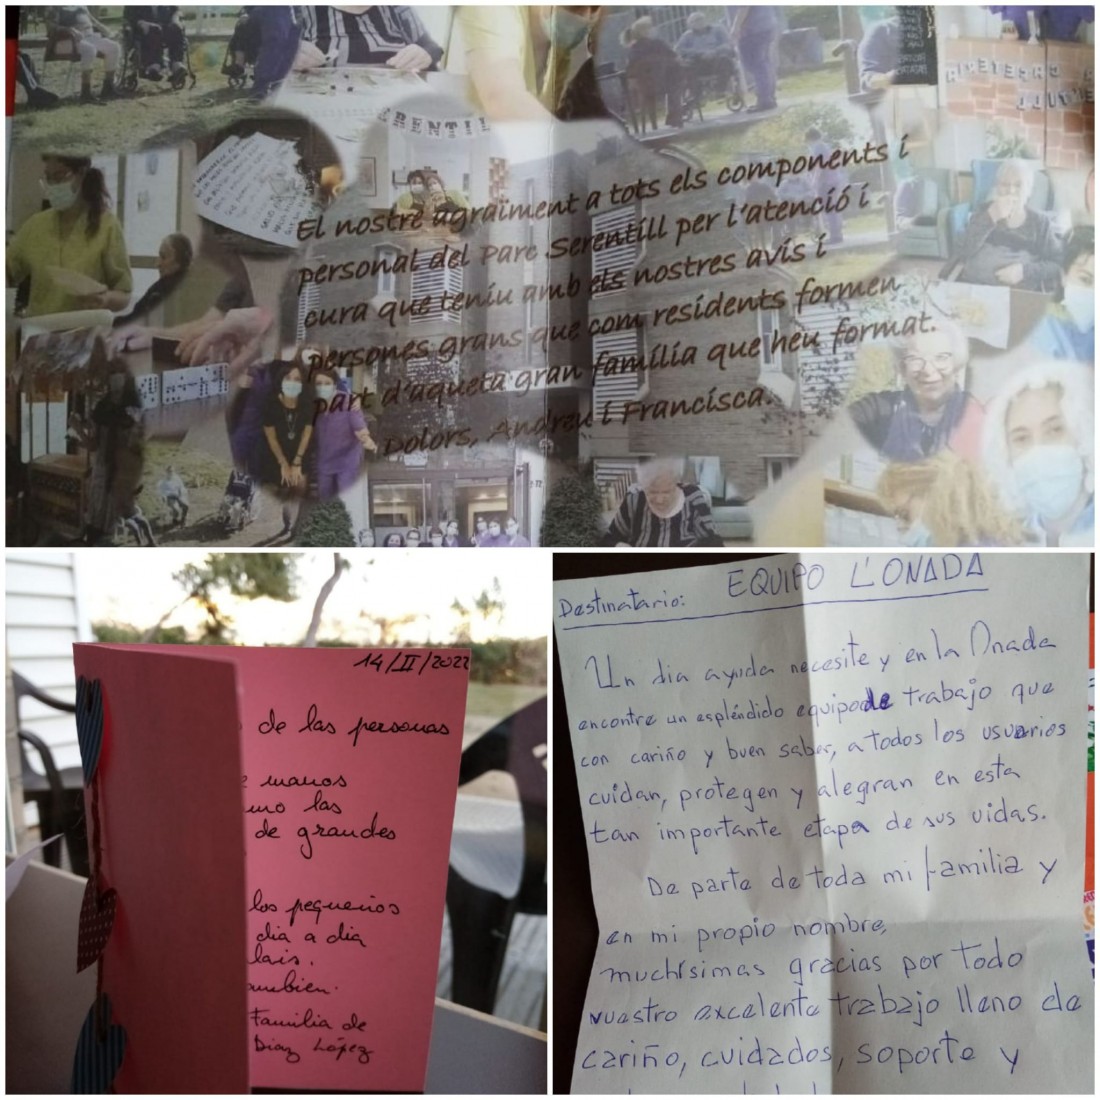 RENTILL
El nostre agraïment a tots els components i
personal del Parc Serentill per l'atenció i
cura que teniu amb els nostres avis i
persones grans que com residents formen
part d'aqueta gran família que heu format.
Dolors, Andreu i Francisca.
14/II/2022
de las personas
manos
las
de grandes
los pequeños
dia a dia
Familia de
Diaz López
Destinatario: EQUIPO L'ONADA
Un dia ayuda necesite y en la Onada
encontre un espléndido equipo de trabajo que
con cariño y buen saber, a todos los usuarios
cuidan, protegen y alegran en esta
tan importante etapa de sus vidas.
De parte de toda mi familia y
en mi propio nombre,
muchísimas gracias por todo
vuestro excelente trabajo lleno de
cariño, cuidados, soporte y